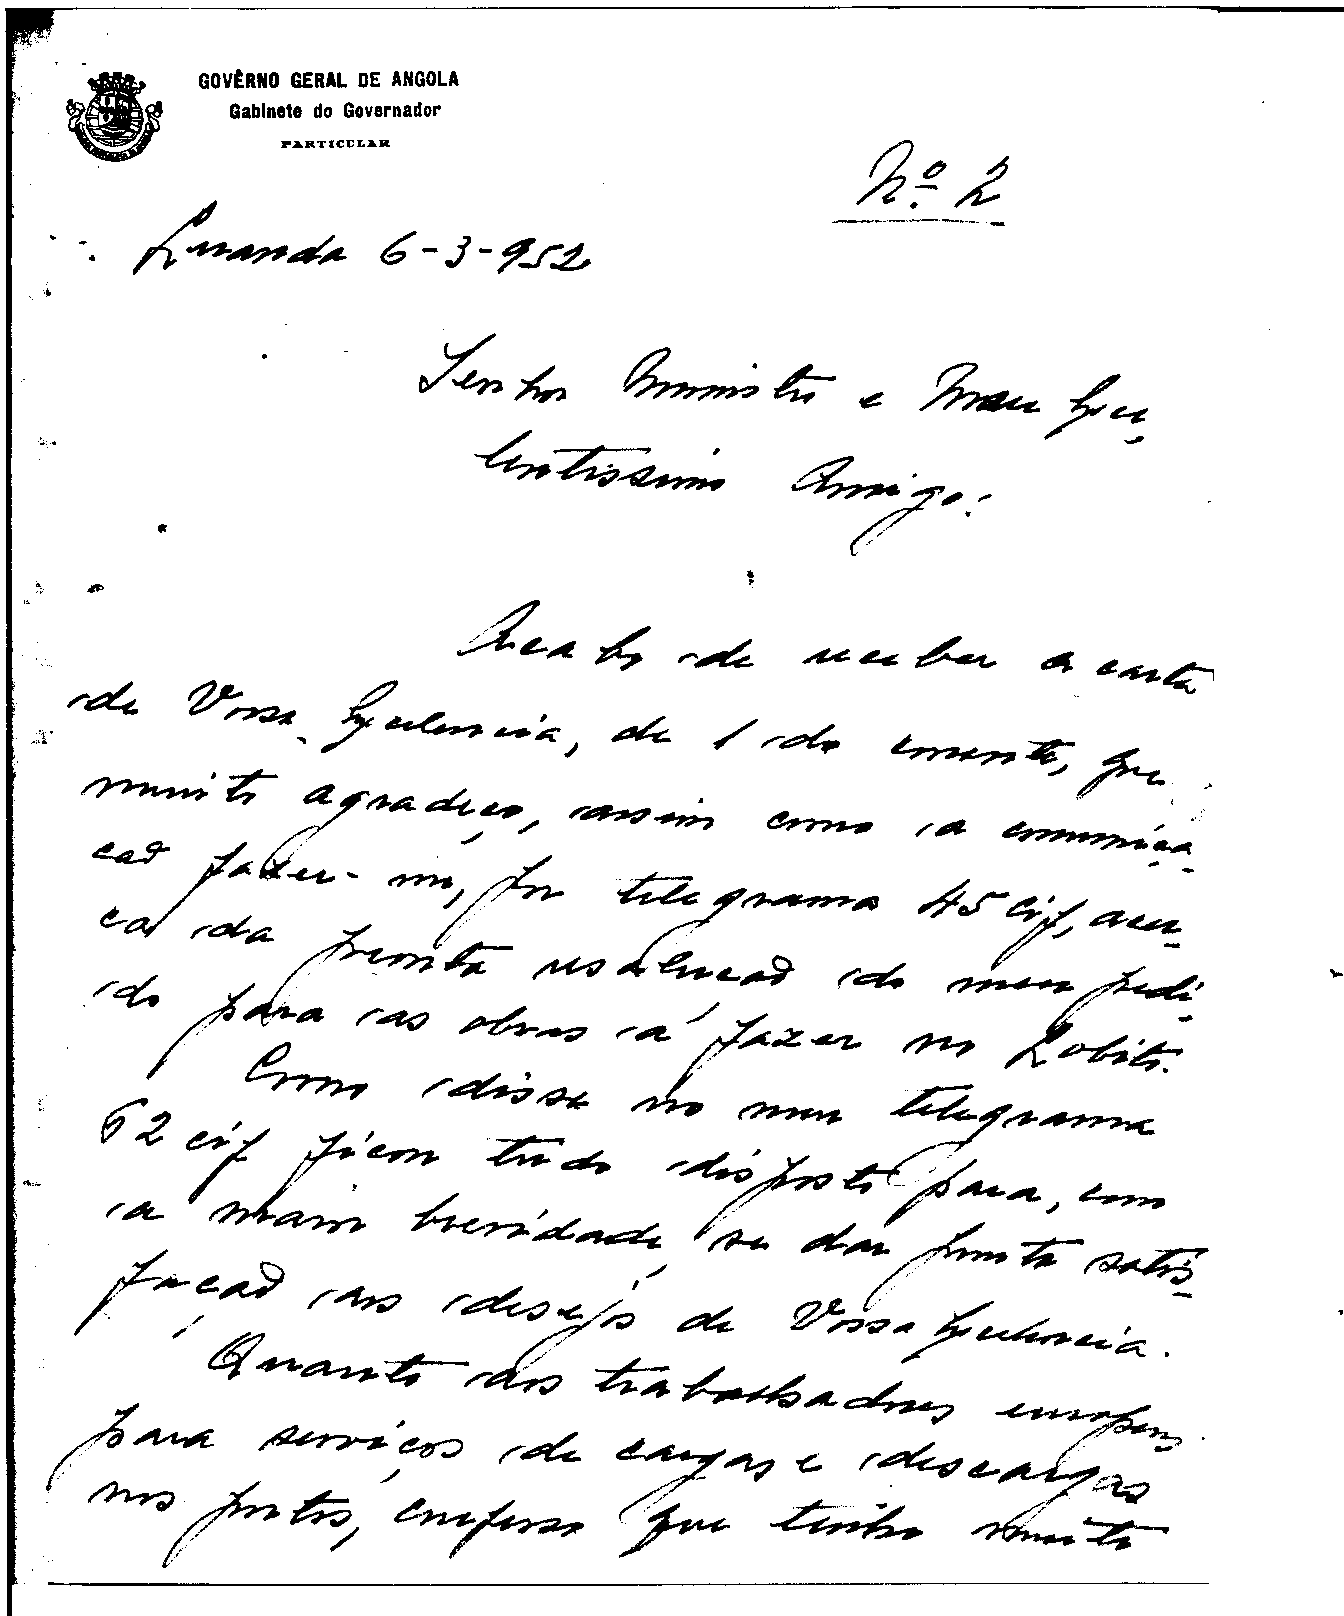 GOVÊRNO GERAL DE ANGOLA
Gabinete do Governador
PARTICULAR
Nº 2
Luanda 6-3-952
Senhor Ministro e Meu Exce-
lentissimo Amigo:
Acabo de receber a carta
de Vossa Excelencia, de 1 do corrente, que
muito agradeço, assim como a comunica-
ção fazer-me, por telegrama 45 cif, acer-
ca da pronta resolução do meu pedi-
do para as obras a fazer no Lobito.
Como disse no meu telegrama
62 cif ficou tudo disposto para, com
a maior brevidade, se dar pronta satis-
fação aos desejos de Vossa Excelencia.
Quanto aos trabalhadores europeus
para serviços de cargas e descargas
nos portos, confesso que tenho muito